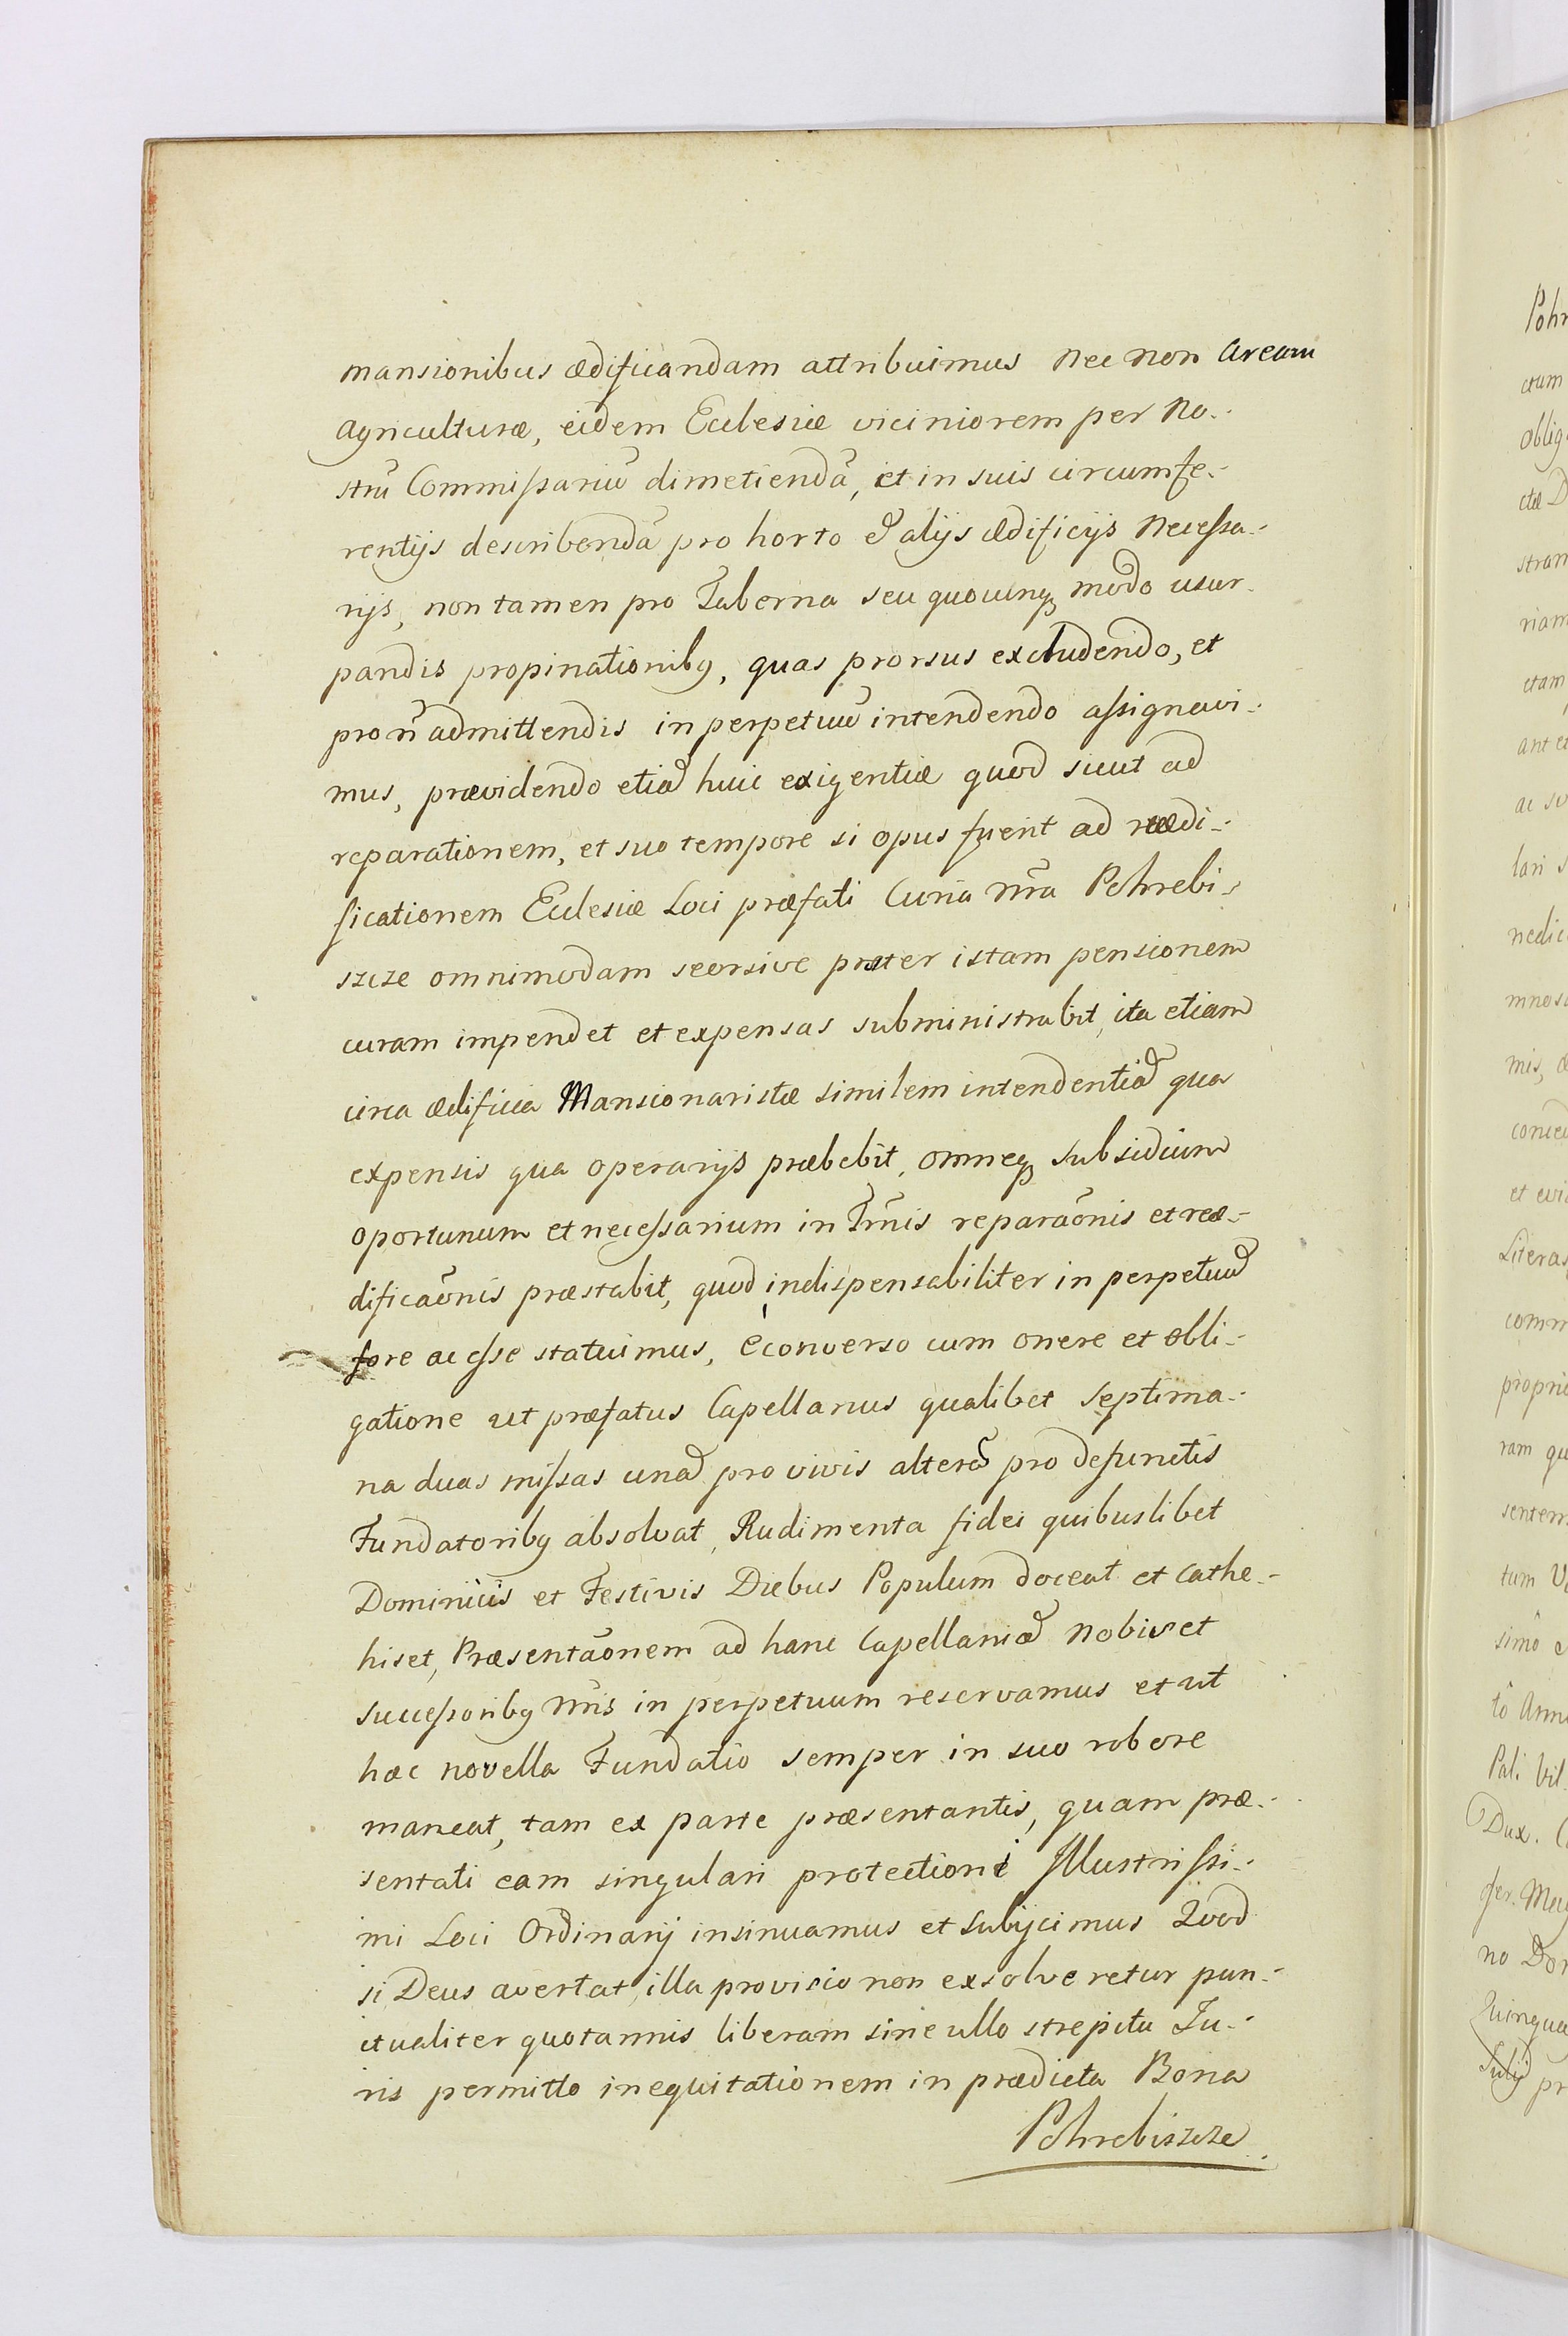 mansionibus ædificandam attribuimus nec non Aream
agriculturæ, eidem Ecclesiæ viciniorem per No-
strũ Commissariũ dimetiendã, et in suis circumfe-
rentijs describendã pro horto & alijs ædificijs Necessa-
rijs, non tamen pro Taberna seu quocunq3 modo usur-
pandis propinationibꝰ, quas prorsus excludendo, et
pro ñ admittendis in perpetuũ intendendo assignavi-
mus, prævidendo etiã huic exigentiæ quod sicut ad
reparationem, et suo tempore si opus fuerit ad reædi-
ficationem Ecclesiæ Loci præfati Curia Nr̃a Pohrebi-
szcze omnimodam seorsive præter istam pensionem
curam impendet et expensas subministrabit, ita etiam
circa ædificia Mansionaristæ similem intendentiã qua
expensis qua operarijs præbebit, omneq3 subsidium
oportunum et necessarium in Tr̃nis reparaõnis et reæ-
dificaõnis præstabit, quod indispensabiliter in perpetuũ
fore ac esse statuimus, è converso cum onere et obli-
gatione ut præfatus Capellanus qualibet septima-
na duas missas unã pro vivis alterã pro defunctis
Fundatoribꝰ absolvat, Rudimenta fidei quibuslibet
Dominicis et Festivis Diebus Populum doceat et Cathe-
hiset, Præsentaõnem ad hanc Capellaniã Nobis et
Successoribꝰ Nr̃is in perpetuum reservamus et ut
hæc novella Fundatio semper in suo robore
maneat, tam ex parte præsentantis, quam præ-
sentati eam singulari protectioni Illustrissi-
mi Loci Ordinarij insinuamus et subijcimus Quod
si Deus avertat, illa provisio non exsolveretur pun-
ctualiter quotannis liberam sine ullo strepitu Ju-
ris permitto inequitationem in prædicta Bona
Pohrebiszcze